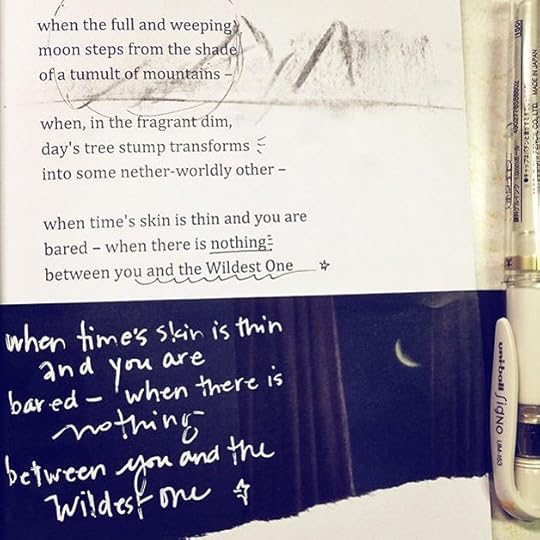 when the full and weeping
moon steps from the shade
of a tumult of mountains –
when, in the fragrant dim,
day's tree stump transforms
into some nether-worldly other –
when time's skin is thin and you are
bared – when there is nothing
between you and the Wildest One
when time's skin is thin
and you are
bared – when there is
nothing
between you and the
Wildest One
MADE IN JAPAN
uni-ball SigNo UM-153